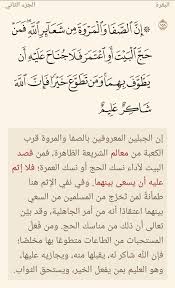 البقرة
الجزء الثاني
۞ إِنَّ ٱلصَّفَا وَٱلْمَرْوَةَ مِن شَعَآئِرِ ٱللَّهِ فَمَنْ
حَجَّ ٱلْبَيْتَ أَوِ ٱعْتَمَرَ فَلَا جُنَاحَ عَلَيْهِ أَن
يَطَّوَّفَ بِهِمَا وَمَن تَطَوَّعَ خَيْرًا فَإِنَّ ٱللَّهَ
شَاكِرٌ عَلِيمٌ
إن الجبلين المعروفين بالصفا والمروة قرب
الكعبة من معالم الشريعة الظاهرة، فمن قصد
البيت لأداء نسك الحج أو نسك العمرة؛ فلا إثم
عليه أن يسعى بينهما. وفي نفي الإثم هنا
طمأنة لمن تحرَّج من المسلمين من السعي
بينهما اعتقادًا أنه من أمر الجاهلية، وقد بيَّن
تعالى أن ذلك من مناسك الحج. ومن فعل
المستحبات من الطاعات متطوعًا بها مخلصًا؛
فإن الله شاكر له، يقبلها منه، ويجازيه عليها،
وهو العليم بمن يفعل الخير، ويستحق الثواب.